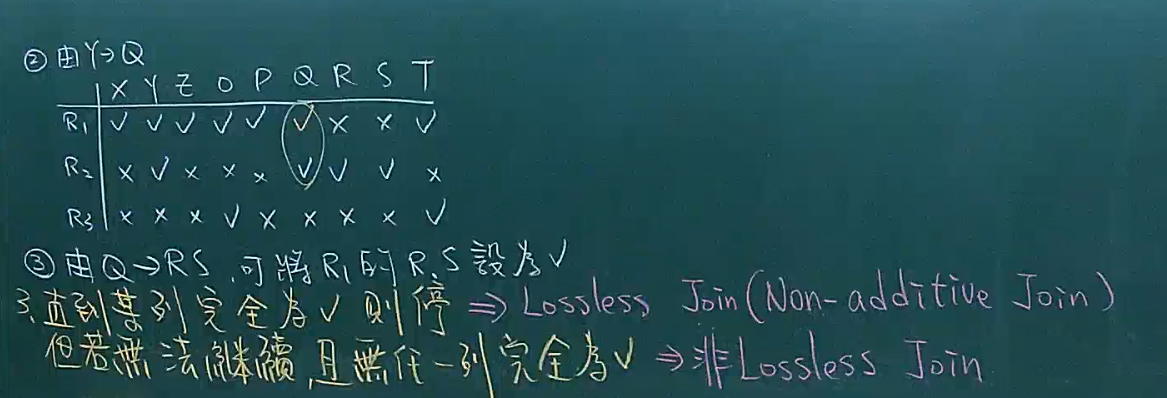 ② 由Y→Q
X Y Z O P Q R S T
R₁ ✓ ✓ ✓ ✓ ✓ ✓ × × ✓
R₂ × ✓ × × × ✓ ✓ ✓ ×
R₃ × × × ✓ × × × × ✓
③ 由Q→RS,可將R₁的R.S設為✓
3.直到某列完全為✓則停⇒Lossless Join(Non-additive Join)
但若無法繼續,且無任一列完全為✓⇒非Lossless Join